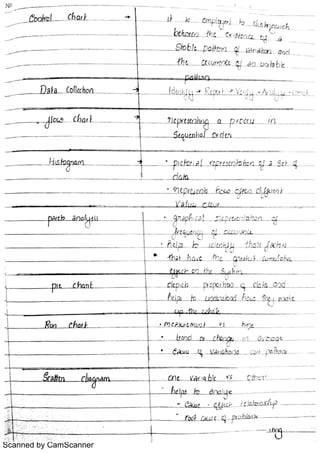 No
Control chart → it is employed to distinguish
between the existence of a
Stable pattern of variation and
the occurrence of an unstable
pattern
Data Collection → Identify → Report → Verify → Analyse →
flow chart → representing a process in
Sequential order
Histogram → • pictorial representation of a set of
data
• represents how often different
Values occur
pareto analysis • graphical representation of
frequency of occurrence
• helps to identify those factors
that have the greatest cumulative
effect on the System
pie chart depicts proportion of data and
helps to understand how they make
up the whole
Run chart • measurement vs time
• trend or change in average
• cause of variations can
Scattern diagram one variable vs other
• helps to analyse
- Cause - effect relationship
- root cause of problem
Scanned by CamScanner